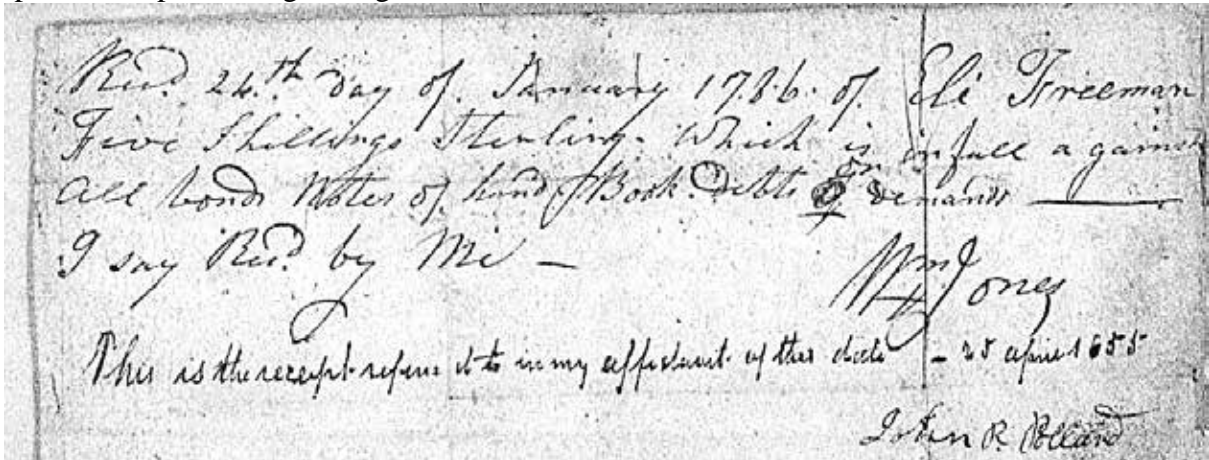 Recd. 24th Day of January 1786 of Eli Freeman
Five Shillings Sterling Which is in full a gainst
all bonds Notes of hand Book Debts or demands
I say Recd. by Me —
Wm Jones
This is the receipt refered to in my affidavit of this date – 25 april 1855
John R. Pollard